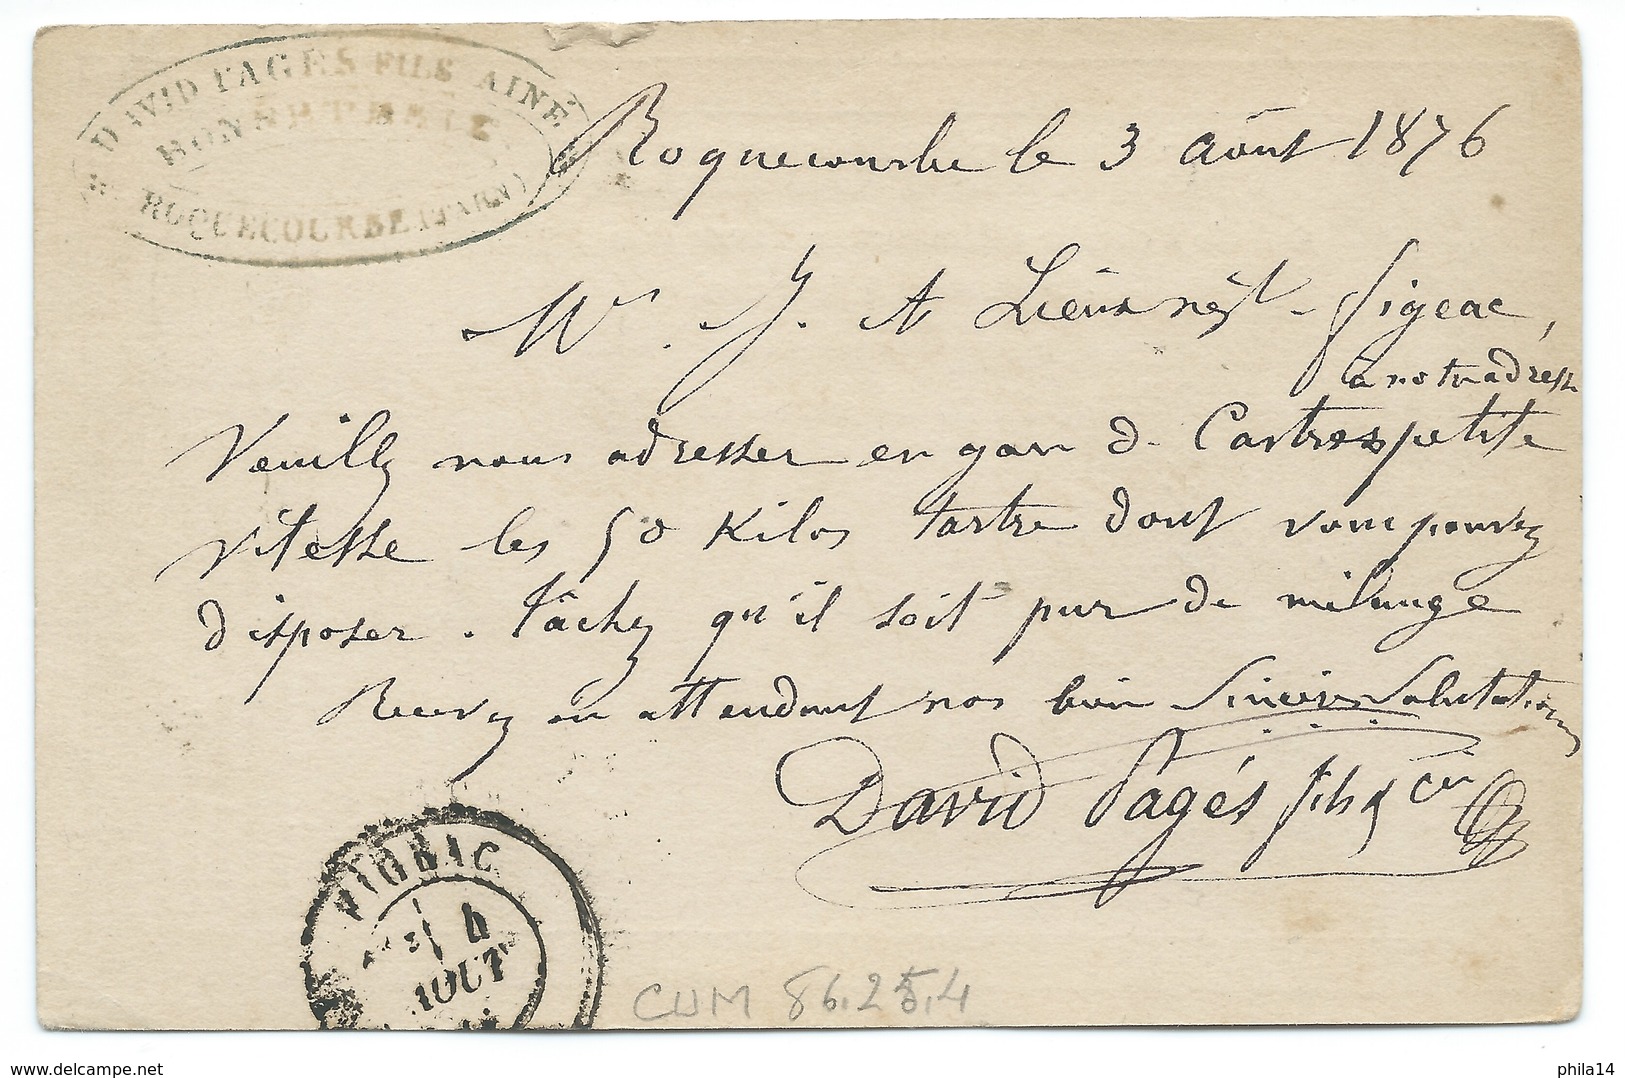 DAVID PAGÈS FILS AINÉ
BONNETERIE
ROQUECOURBE (TARN)
Roquecourbe le 3 Août 1876
Mr J. A Figeac,
à notre adresse
Veuillez nous adresser en gare de Castres petite
vitesse les 50 Kilos tartre dont vous pouvez
disposer. Tâchez qu'il soit pur de mélange
Recevez en attendant nos bien Sincères Salutations
David Pagés fils
FIGEAC
4
AOUT
CUM 86.25.4
www.delcampe.net
phila14